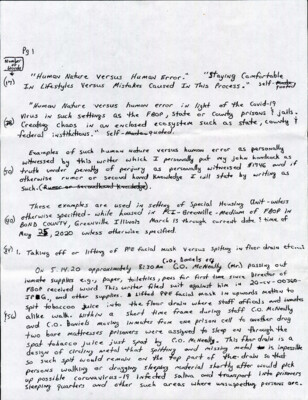 Pg 1
Number of words
(17) "Human Nature versus Human Error." "Staying Comfortable
In Lifestyles Versus Mistakes Caused In This Process." Self-quoted.
"Human Nature versus human error in light of the Covid-19
Virus in such settings as the FBOP, State or County prisons & jails.
Creating Chaos in an enclosed ecosystem such as state, county &
federal institutions." Self-quoted.
Examples of such human nature versus human error as personally
witnessed by this writer which I personally put my john hancock as
truth under penalty of perjury as personally witnessed and if
otherwise rumor or second hand knowledge I will state by writing as
such. (Rumor or secondhand knowledge).
These examples are used in setting of Special Housing Unit - unless
otherwise specified - while housed in FCI - Greenville - Medium of FBOP in
BOND COUNTY, Greenville Illinois March is through current date & time of
May 25, 2020 unless otherwise specified.
1. Taking off or lifting of PPE facial mask versus spitting in floor drain
C.O. Daniels or
On 5.14.20 approximately C.O. McNeally (Mr.) passing out
inmate supplies e.g., paper, toiletries, pens for first time since Director of
FBOP received word This writer filed suit against him in 20-cv-00360-
SPBG, and other supplies & lifted PPE facial mask in upwards motion to
spit tobacco juice into the floor drain where staff officials and inmates
alike walk. Within a short time frame during staff C.O. McNeally
and C.O. Daniels moving inmates from one prison cell to another
two bare mattresses prisoners were assigned to sleep on through the
spot tobacco juice just spat by C.O. McNeally. This floor drain is a
design of circling metal that spitting and missing metal is impossible
so such spit would remain on the top part of the drain so that
persons walking or dragging sleeping material shortly after would pick
up possible coronavirus-19 infected saliva and transport into prisoners
sleeping quarters and other such areas where unsuspecting persons are.